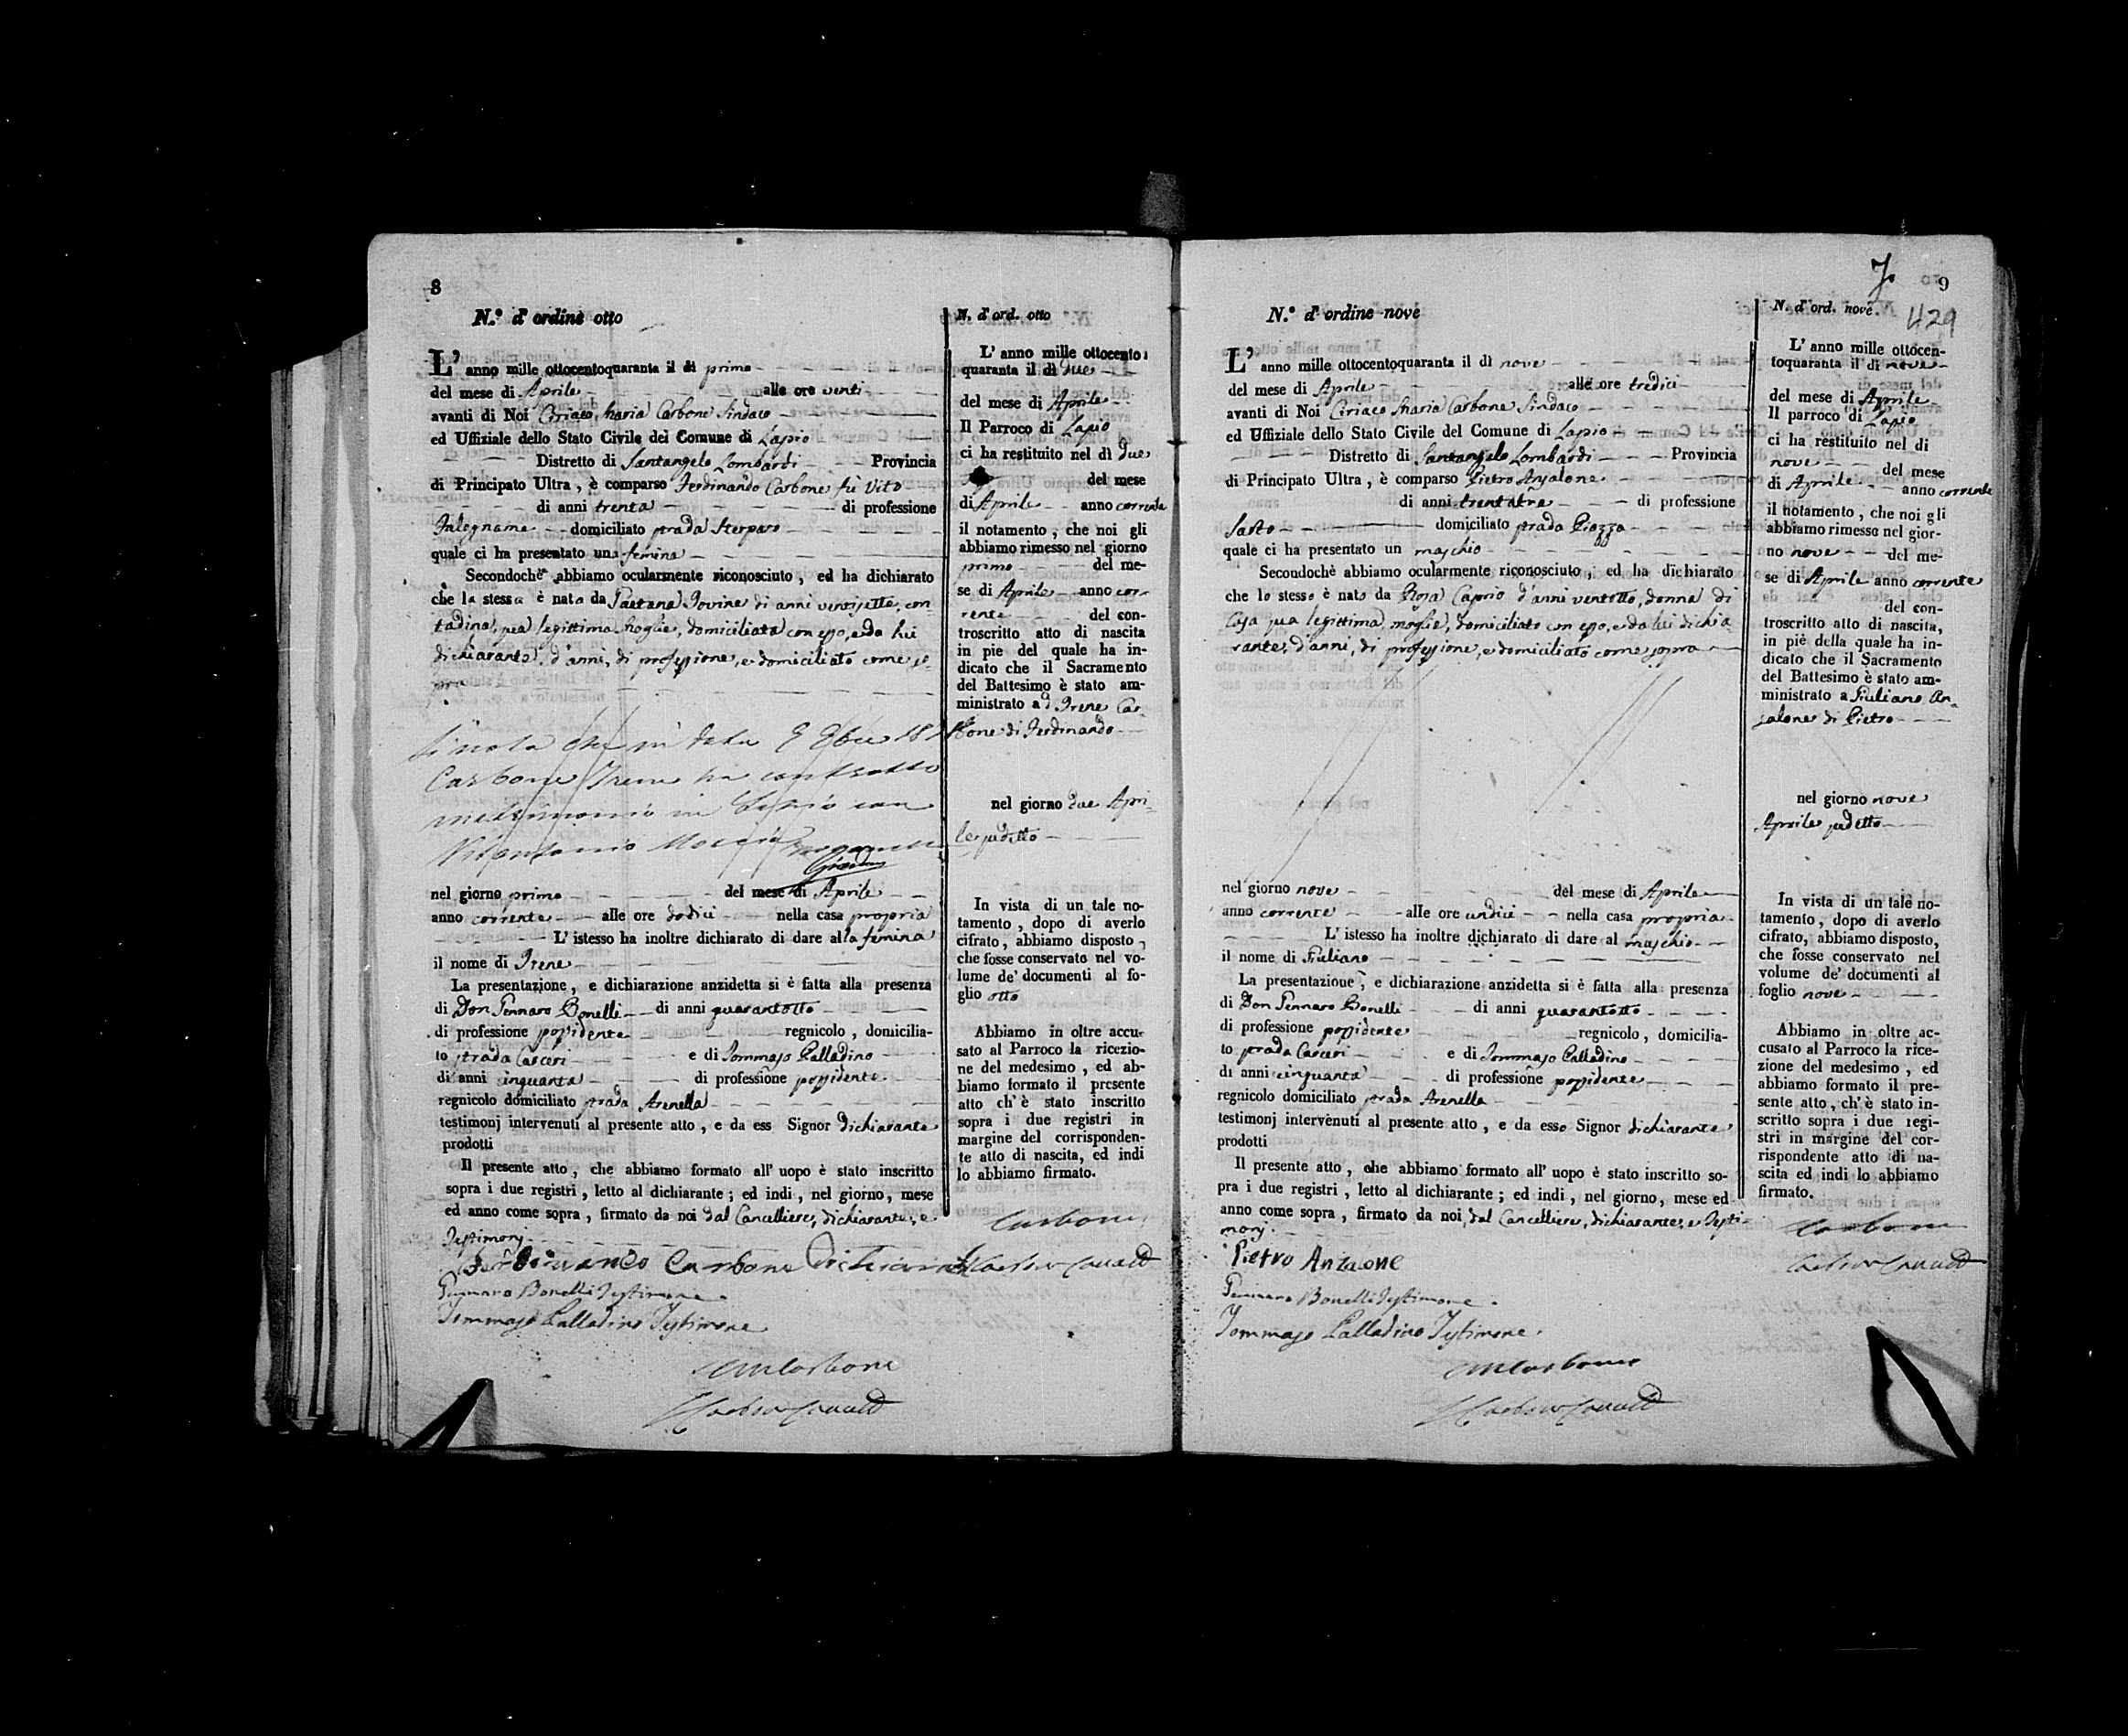 8
N.º d' ordine otto
L' anno mille ottocentoquaranta il dì primo
del mese di Aprile alle ore venti
avanti di Noi Ciriaco Maria Carbone Sindaco
ed Uffiziale dello Stato Civile del Comune di Lapio
Distretto di Santangelo Lombardi Provincia
di Principato Ultra, è comparso Ferdinando Carbone fù Vito
di anni trenta di professione
Falegname domiciliato strada Sterparo
quale ci ha presentato una femina
Secondochè abbiamo ocularmente riconosciuto, ed ha dichiarato
che la stessa è nata da Gaetana Iovine di anni ventisette, con-
tadina, sua legittima moglie, domiciliata con esso, e da lui
dichiarante, d'anni, di professione, e domiciliato come so-
pra
Si nota che in data 9 8bre
Carbone Irene ha contratto
matrimonio in Lapio con
Vitantonio
nel giorno primo del mese di Aprile
anno corrente alle ore dodici nella casa propria
L' istesso ha inoltre dichiarato di dare alla femina
il nome di Irene
La presentazione, e dichiarazione anzidetta si è fatta alla presenza
di Don Gennaro Bonelli di anni quarantotto
di professione possidente regnicolo, domicilia-
to strada Carceri e di Tommaso Palladino
di anni cinquanta di professione possidente
regnicolo domiciliato strada Arenella
testimonj intervenuti al presente atto, e da ess Signor dichiarante
prodotti
Il presente atto, che abbiamo formato all' uopo è stato inscritto
sopra i due registri, letto al dichiarante; ed indi, nel giorno, mese
ed anno come sopra, firmato da noi dal Cancelliere, dichiarante, e
Testimonj
Ferdinando Carbone Dichiarante
Gennaro Bonelli Testimone
Tommaso Palladino Testimone
CMCarbone
N. d' ord. otto
L' anno mille ottocento
quaranta il dì due
del mese di Aprile
Il Parroco di Lapio
ci ha restituito nel dì due
del mese
di Aprile anno corrente
il notamento, che noi gli
abbiamo rimesso nel giorno
primo del me-
se di Aprile anno cor-
rente del con-
troscritto atto di nascita
in pie del quale ha in-
dicato che il Sacramento
del Battesimo è stato am-
ministrato ad Irene Car-
bone di Ferdinando
nel giorno due Apri-
le sudetto
In vista di un tale no-
tamento, dopo di averlo
cifrato, abbiamo disposto,
che fosse conservato nel vo-
lume de' documenti al fo-
glio otto
Abbiamo in oltre accu-
sato al Parroco la ricezio-
ne del medesimo, ed ab-
biamo formato il presente
atto ch' è stato inscritto
sopra i due registri in
margine del corrisponden-
te atto di nascita, ed indi
lo abbiamo firmato.
Carbone
7
9
429
N.º d' ordine nove
L' anno mille ottocentoquaranta il dì nove
del mese di Aprile alle ore tredici
avanti di Noi Ciriaco Maria Carbone Sindaco
ed Uffiziale dello Stato Civile del Comune di Lapio
Distretto di Santangelo Lombardi Provincia
di Principato Ultra, è comparso Pietro Anzalone
di anni trentatre di professione
Sarto domiciliato strada Piazza
quale ci ha presentato un maschio
Secondochè abbiamo ocularmente riconosciuto, ed ha dichiarato
che lo stesso è nato da Rosa Caprio d'anni ventotto, donna di
Casa sua legittima moglie, domiciliata con esso, e da lui dichia-
rante, d'anni, di professione, e domiciliato come sopra
nel giorno nove del mese di Aprile
anno corrente alle ore undici nella casa propria
L' istesso ha inoltre dichiarato di dare al maschio
il nome di Giuliano
La presentazione, e dichiarazione anzidetta si è fatta alla presenza
di Don Gennaro Bonelli di anni quarantotto
di professione possidente regnicolo, domicilia-
to strada Carceri e di Tommaso Palladino
di anni cinquanta di professione possidente
regnicolo domiciliato strada Arenella
testimonj intervenuti al presente atto, e da esso Signor dichiarante
prodotti
Il presente atto, che abbiamo formato all' uopo è stato inscritto so-
pra i due registri, letto al dichiarante; ed indi, nel giorno, mese ed
anno come sopra, firmato da noi, dal Cancelliere, dichiarante, e Testi-
monj.
Pietro Anzalone
Gennaro Bonelli Testimone
Tommaso Palladino Testimone
CMCarbone
N. d' ord. nove.
L' anno mille ottocen-
toquaranta il di nove
del mese di Aprile
Il parroco di Lapio
ci ha restituito nel di
nove del mese
di Aprile anno corrente
il notamento, che noi gli
abbiamo rimesso nel gior-
no nove del me-
se di Aprile anno corrente
del con-
troscritto atto di nascita,
in piè della quale ha in-
dicato che il Sacramento
del Battesimo è stato am-
ministrato a Giuliano An-
zalone di Pietro
nel giorno nove
Aprile sudetto
In vista di un tale no-
tamento, dopo di averlo
cifrato, abbiamo disposto,
che fosse conservato nel
volume de' documenti al
foglio nove
Abbiamo in oltre ac-
cusato al Parroco la rice-
zione del medesimo, ed
abbiamo formato il pre-
sente atto, ch' è stato in-
scritto sopra i due regi-
stri in margine del cor-
rispondente atto di na-
scita ed indi lo abbiamo
firmato.
Carbone